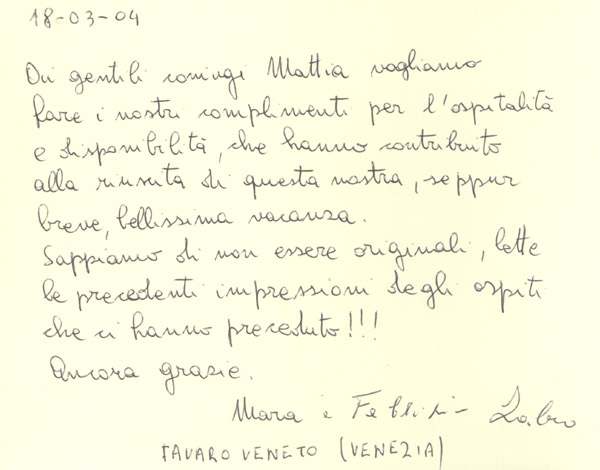 18-03-04
Ai gentili coniugi Mattia vogliamo
fare i nostri complimenti per l'ospitalità
e disponibilità, che hanno contributo
alla riuscita di questa nostra, seppur
breve, bellissima vacanza.
Sappiamo di non essere originali, lette
le precedenti impressioni degli ospiti
che ci hanno preceduto!!!
Ancora grazie.
Mara e
FAVARO VENETO (VENEZIA)